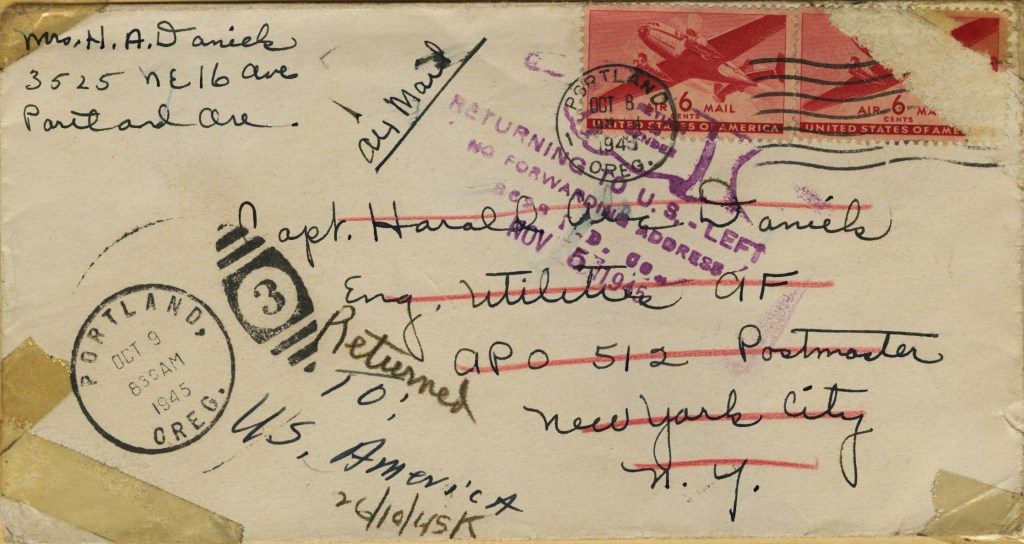 Mrs. H. A. Daniels
3525 NE 16 Ave
Portland Ore.
Air Mail
AIR 6 MAIL
CENTS
UNITED STATES OF AMERICA
AIR 6 MA
CENTS
UNITED STATES OF AME
PORTLAND
OCT 8
1945
OREG.
RETURNING TO U.S.-LEFT
NO FORWARDING ADDRESS
NOV 5 1945
Capt. Harald Daniels
Eng. Utilities AF
APO 512 Postmaster
New York City
N. Y.
3
PORTLAND,
OCT 9
830AM
1945
OREG.
Returned
TO:
U.S. America
26/10/45K